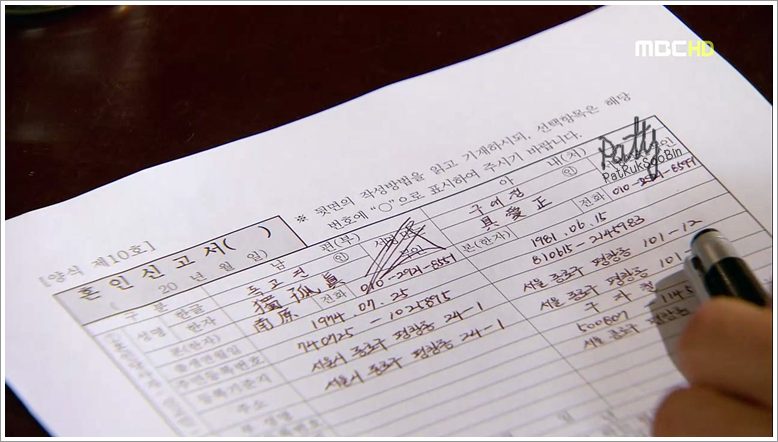 MBC HD
※ 뒷면의 작성방법을 읽고 기재하시되, 선택항목은 해당
번호에 "○"으로 표시하여 주시기 바랍니다.
[양식 제10호]
혼 인 신 고 서 ( )
( 20 년 월 일)
구 분 남 편(부) 아 내(처)
성명 한글 독고진 ㊞ 구애정 ㊞ Patty PatRukSooBin
한자 獨孤眞 전화 010-2921-8551 具愛正 전화
본(한자) 南原 본(한자)
출생연월일 1974. 07. 25 1981. 06. 15
주민등록번호 740725 - 1025895 810615 - 2145983
등록기준지 서울시 종로구 평창동 24-1 서울 종로구 평창동 101-12
주소 서울시 종로구 평창동 24-1 서울 종로구 평창동 101-
부 성명 구자철
등록번호 500807 1145
서울 종로구 평창동